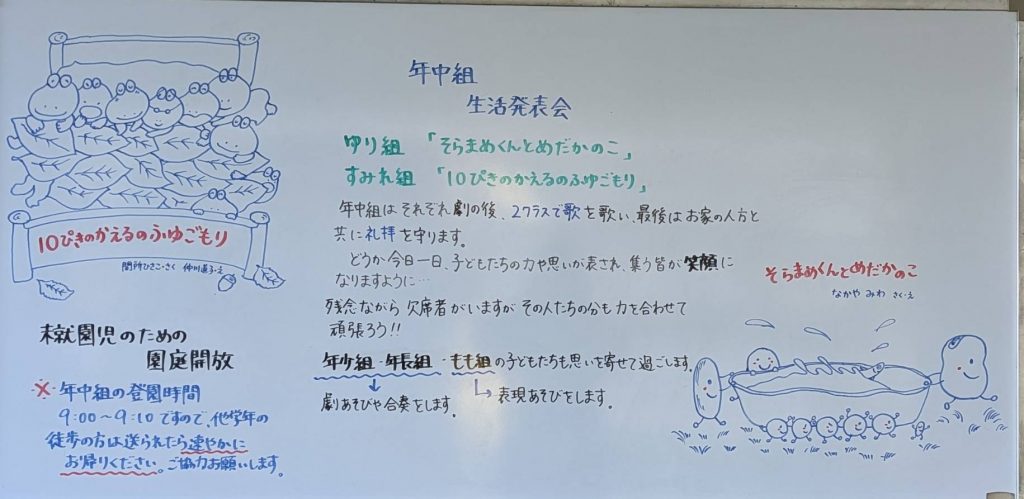 10ぴきのかえるのふゆごもり
間所ひさこ・さく 仲川道子・え
未就園児のための
園庭開放
※ 年中組の登園時間
9:00～9:10ですので、他学年の
徒歩の方は送られたら速やかに
お帰りください。ご協力お願いします。
年中組
生活発表会
ゆり組 「そらまめくんとめだかのこ」
すみれ組 「10ぴきのかえるのふゆごもり」
年中組はそれぞれ劇の後、2クラスで歌を歌い、最後はお家の人方と
共に礼拝を守ります。
どうか今日一日、子どもたちの力や思いが表され、集う皆が笑顔に
なりますように…
残念ながら 欠席者がいますが その人たちの分も 力を合わせて
頑張ろう!!
年少組・年長組・もも組の子どもたちも思いを寄せて過ごします。
劇あそびや合奏をします。
表現あそびをします。
そらまめくんとめだかのこ
なかや みわ さく・え